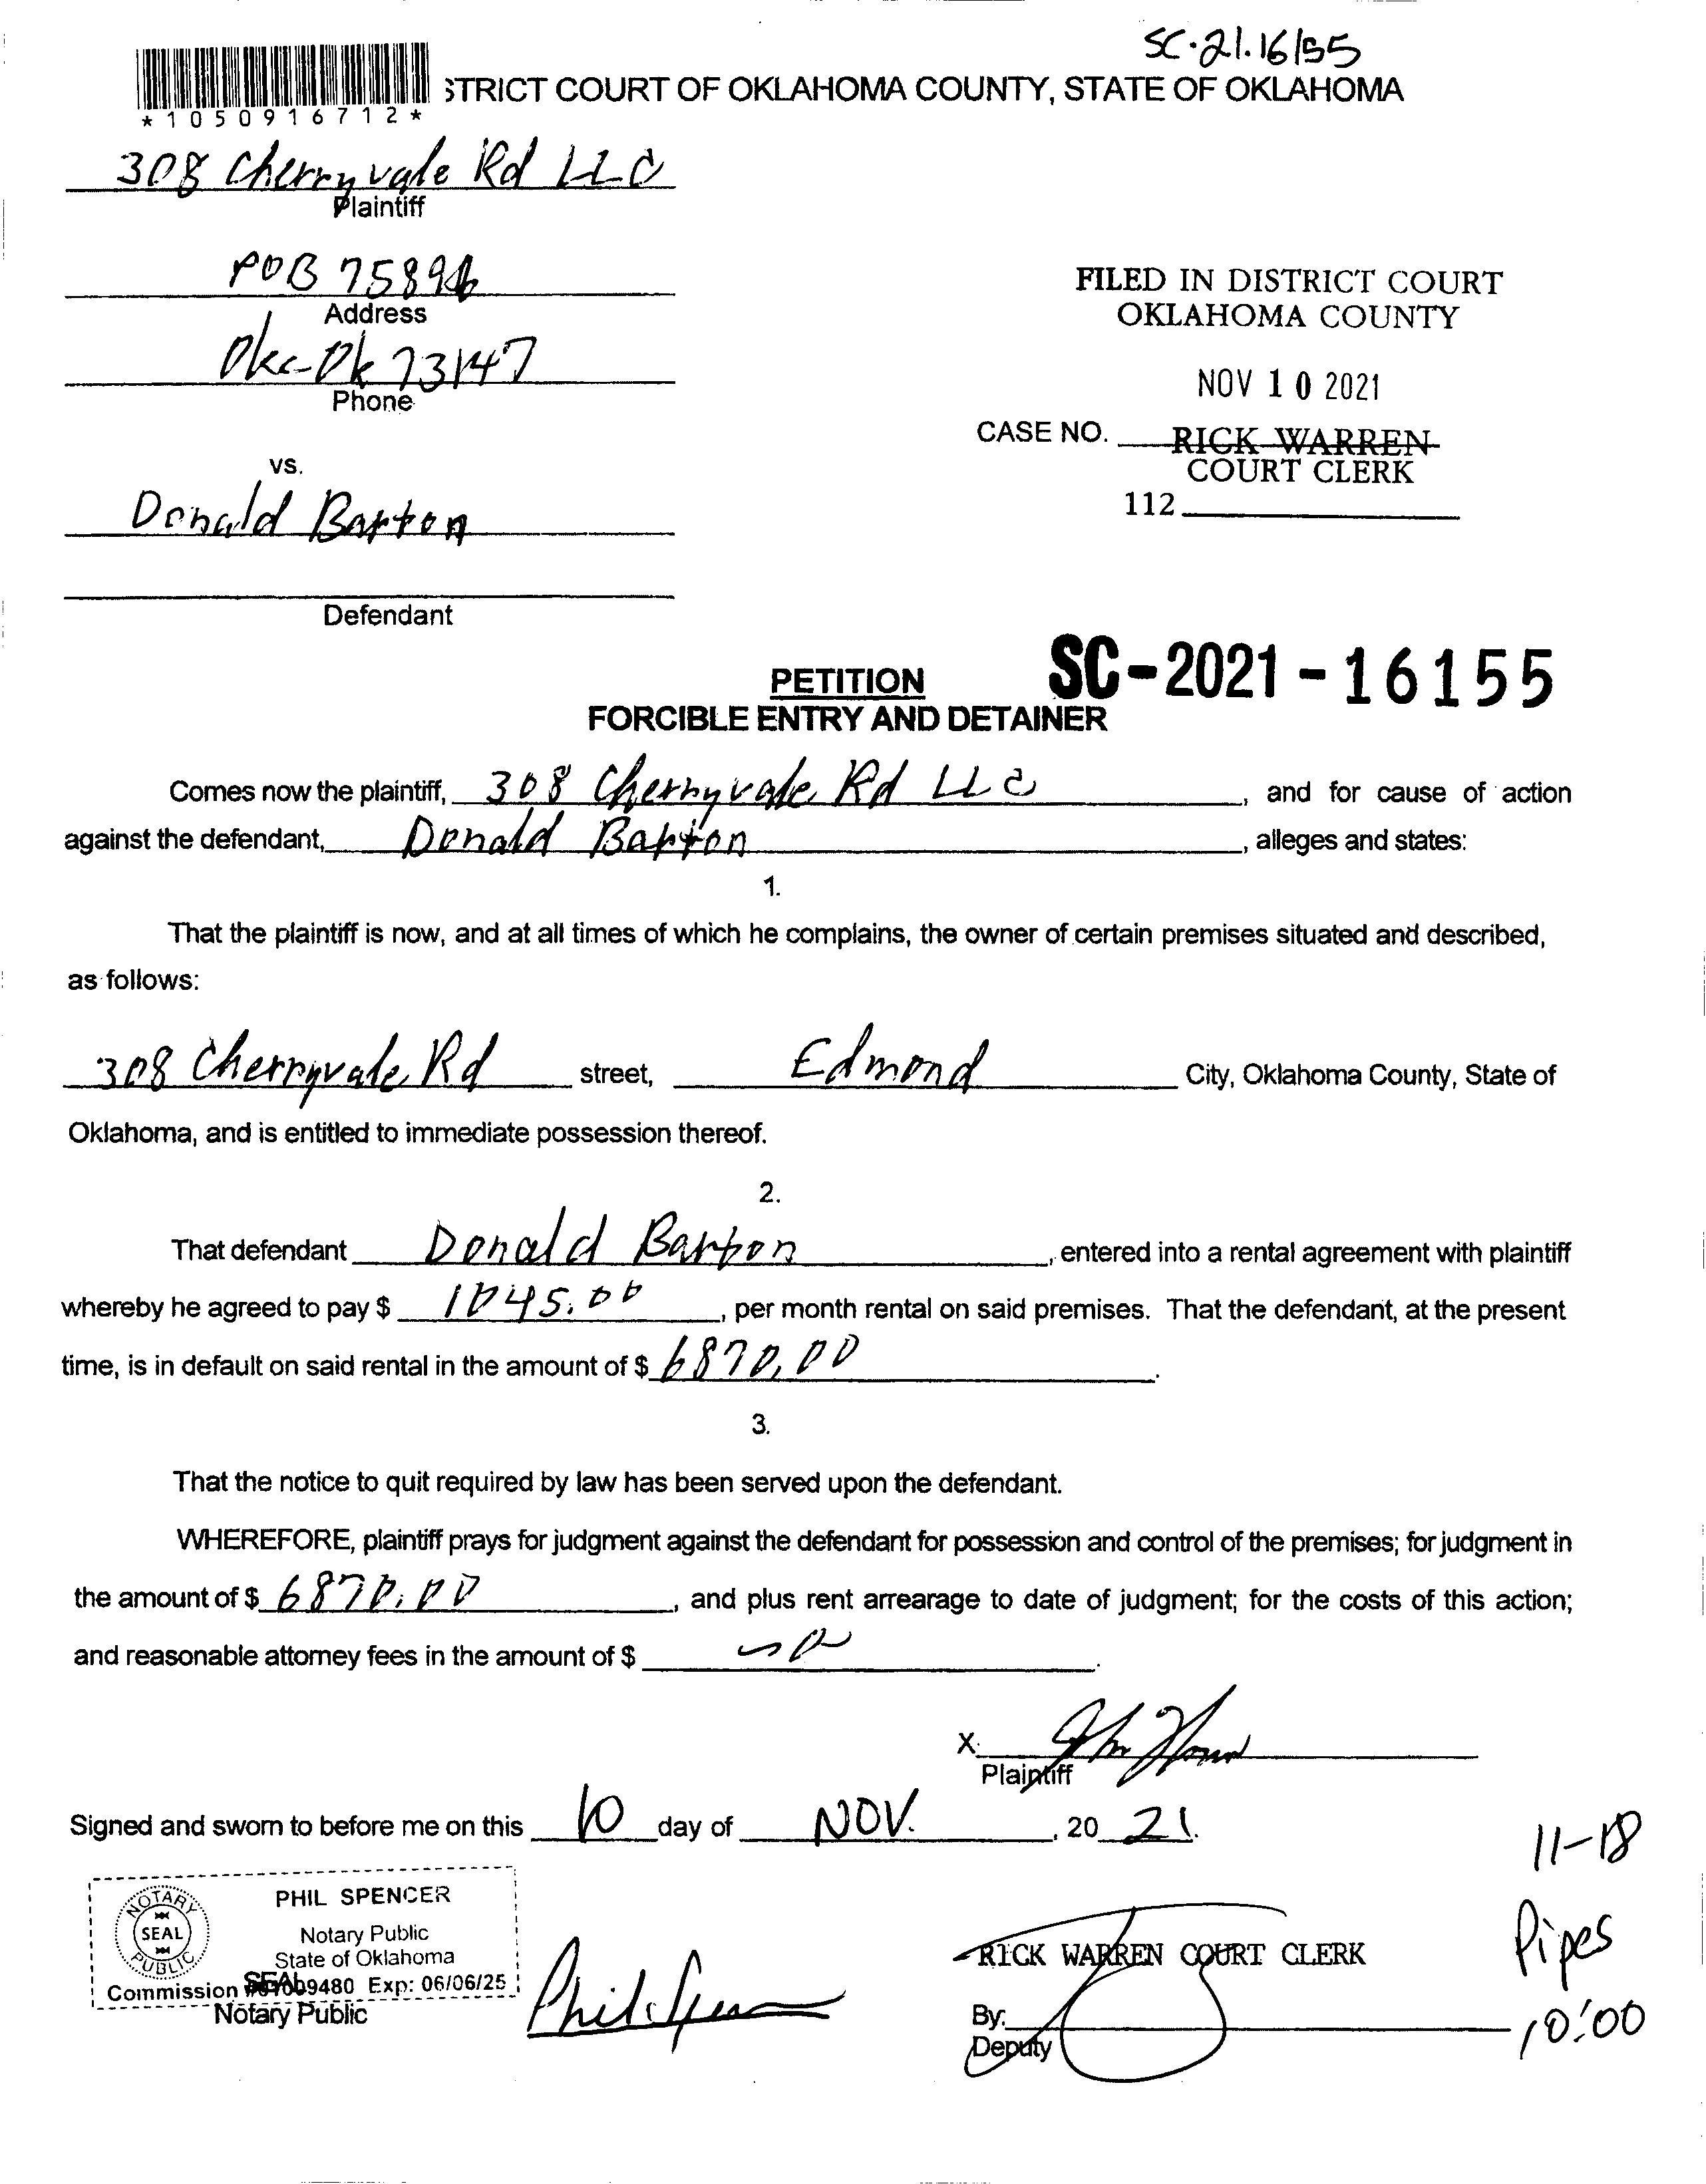 SC-21.16155
STRICT COURT OF OKLAHOMA COUNTY, STATE OF OKLAHOMA
*1050916712*
308 Cherryvale Rd LLC
Plaintiff
POB 75894
Address
Okc-Ok 73147
Phone
FILED IN DISTRICT COURT
OKLAHOMA COUNTY
NOV 10 2021
CASE NO. RICK WARREN
COURT CLERK
112
vs.
Donald Barton
Defendant
PETITION
SC-2021-16155
FORCIBLE ENTRY AND DETAINER
Comes now the plaintiff, 308 Cherryvale Rd LLC, and for cause of action
against the defendant, Donald Barton, alleges and states:
1.
That the plaintiff is now, and at all times of which he complains, the owner of certain premises situated and described,
as follows:
308 Cherryvale Rd street, Edmond City, Oklahoma County, State of
Oklahoma, and is entitled to immediate possession thereof.
2.
That defendant Donald Barton, entered into a rental agreement with plaintiff
whereby he agreed to pay $ 1045.00, per month rental on said premises. That the defendant, at the present
time, is in default on said rental in the amount of $ 6870.00.
3.
That the notice to quit required by law has been served upon the defendant.
WHEREFORE, plaintiff prays for judgment against the defendant for possession and control of the premises; for judgment in
the amount of $ 6870.00, and plus rent arrearage to date of judgment; for the costs of this action;
and reasonable attorney fees in the amount of $
X
Plaintiff
Signed and sworn to before me on this 10 day of NOV., 20 21.
11-18
Pipes
10:00
NOTARY PUBLIC
SEAL
PHIL SPENCER
Notary Public
State of Oklahoma
Commission 9480 Exp: 06/06/25
SEAL
Notary Public
Phil Spencer
RICK WARREN COURT CLERK
By:
Deputy